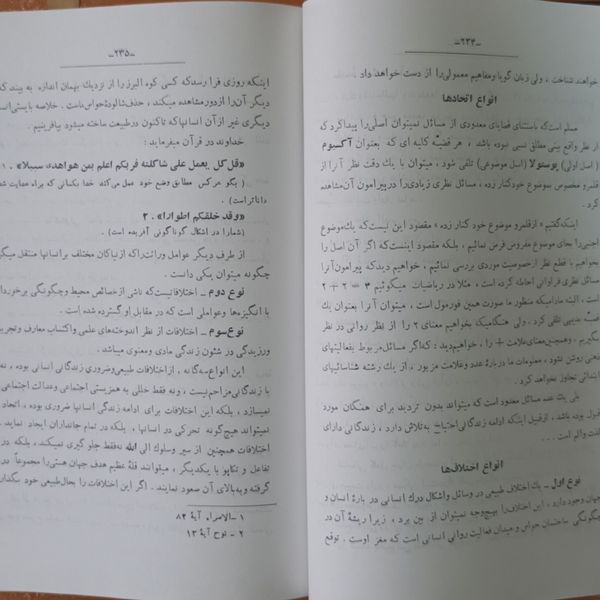 ـ۲۳۴ـ
خواهند شناخت ، ولی زبان گویا ومفاهیم معمولی‌را از دست خواهد داد
انواع اتحادها
مسلم است‌که باستثنای قضایای معدودی از مسائل نمیتوان اصلی‌را پیداکرد که
از نظر واقع بینی مطلق نسبی نبوده باشد ، هر قضیهٔ کلیه ای که بعنوان آکسیوم
( اصل اولی ) پوستولا (اصل موضوعی) تلقی شود ، میتوان با یك دقت نظر آنرا از
قلمرو مخصوص بموضوع خودکنار زده ، مسائل نظری زیادی‌را درپیرامون آن‌مشاهده
کرد .
اینکه‌گفتیم «ازقلمرو موضوع خود کنار زده» مقصود این نیست‌که یك‌موضوع
اجنبی‌را بجای موضوع مفروض فرض نمائیم ، بلکه مقصود اینست‌که اگر آن اصل را
بخواهیم با قطع نظر ازخصوصیت موردی بررسی نمائیم ، خواهیم دیدکه پیرامون‌آنرا
مسائل نظری فراوانی احاطه کرده است ، مثلا در ریاضیات میگوئیم ۴ = ۲ + ۲
است ، البته مادامیکه منظور ما صورت همین فورمول است ، میتوان آنرا بعنوان یك
بدیهی تلقی کرد . ولی هنگامیکه بخواهیم معنای ۲ را از نظر روانی در نظر
بگیریم . وهمچنین‌معنای‌علامت + را ، خواهیم‌دید : که‌اگر مسائل‌مربوط بفعالیتهای
ذهنی روشن نشود ، معلومات ما در بارهٔ عدد وعلامت مزبور ، از یك رشته شناسائیهای
ابتدائی تجاوز نخواهد کرد .
بلی یك عده مسائل معدود است که میتواند بدون تردید برای همگان مورد
قبول بوده باشد . ازقبیل اینکه ادامه زندگانی‌احتیاج بتلاش دارد ، زندگانی دارای
لذت والم است . .
انواع اختلاف‌ها
نوع اول ـ یك اختلاف طبیعی در وسائل واشکال درك انسانی در بارهٔ انسان و
جهان وجود دارد ، این اختلاف‌را بهیچ‌وجه نمیتوان از بین برد ، زیرا ریشهٔ آن در
چگونگی ساختمان حواس و میدان فعالیت روانی انسانی است که مغز اوست . توقع
ـ۲۳۵ـ
اینکه روزی فرا رسدکه کسی کوه البرز را از نزدیك بهمان اندازه به بیند که
دیگر آن‌را ازدور مشاهده میکند ، حذف شالودهٔ حواس ماست . خلاصه بایستی انسا
دیگری غیر از آن انسانها که تاکنون درطبیعت ساخته میشود بیافرینیم .
خداوند در قرآن میفرماید :
«قل کل یعمل علی شاکلته فربکم اعلم بمن هواهدی سبیلا» . ۱
( بگو هر کس مطابق وضع خود عمل می‌کند خدا بکسانی که براه هدایت شد
داناتر است ) .
«وقد خلقکم اطوارا» . ۲
(شمارا در اشکال گوناگونی آفریده است) .
از طرف دیگر عوامل وراثت‌راکه ازنیاکان مختلف برانسانها منتقل میگر
چگونه میتوان یکی دانست .
نوع دوم ـ اختلافاتیست‌که ناشی ازخصائص محیط وچگونگی برخوردا
با انگیزه‌ها وعواملی است که در مقابل او گسترده شده است .
نوع سوم ـ اختلافات از نظر اندوخته‌های علمی واکتساب معارف وتجرب
ورزیدگی در شئون زندگی مادی ومعنوی میباشد .
این انواع سه‌گانه ، ازاختلافات طبیعی‌وضروری زندگانی انسانی بوده ، نه
با زندگانی مزاحم‌نیست ، ونه فقط خللی به همزیستی اجتماعی وعدالت اجتماعی
نمیسازد ، بلکه این اختلافات برای ادامه زندگی انسانها ضروری بوده ، اتحاد
نمیتواند هیچ‌گونه تحرکی در انسانها ، بلکه در تمام جانداران ایجاد نماید .
اختلافات همچنین از سیر وسلوك الی الله نه‌فقط جلو گیری نمیکند ، بلکه در
تفاعل و تکاپو با یکدیگر ، میتوانند قلهٔ عظیم هدف جهان هستی‌را مجموعاً در
گرفته وببالای آن صعود نمایند . اگر این اختلافات را بحال طبیعی خود بگذار
۱ ـ الاسراء آیهٔ ۸۴
۲ ـ نوح آیهٔ ۱۳